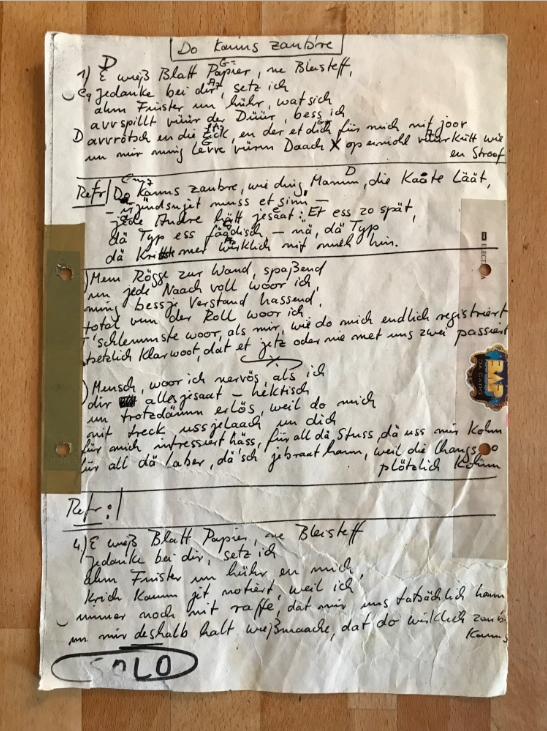 Do kanns zaubre
D G-
1) E wieß Blatt Papier, ne Bleisteff,
Jedanke bei dir, setz ich
ahm Finster un hühr, wat sich
avvspillt vüür der Düür, bess ich
D avvrötsch en die Eck, en der et dich für mich nit joov
un mir ming Levve vürm Daach X op enmohl vüürkütt wie
en Stroof
Refr| Do kanns zaubre, wie ding Mamm, die Kaate läät,
D
- sujet muss et sinn -
jede Andre hätt jesaat: Et ess zo spät,
dä Typ ess fäädisch - nä, dä Typ
dä kritt mer wirklich nit mieh hin.
) Mem Rögge zur Wand, spaßend
un jede Naach voll woor ich,
ming bessje Verstand hassend,
total vun der Roll woor ich,
schlemmste woor, als mir, wie do mich endlich registriert
tzlich klar woot, dat et jetz oder nie met uns zwei passiert
) Mensch, woor ich nervös, als ich
dir alles jesaat - hektisch
un trotzdämm erlös, weil do mich
nit treck ussgelaach un dich
für mich intressiert häss, für all dä Stuss, dä uss mir kohm
für all dä Laber, dä 'sch jebraat hann, weil die Chance so
plötzlich kohm
Refr:|
4.) E wieß Blatt Papier, ne Bleisteff
Jedanke bei dir, setz ich
ahm Finster un hühr en mich,
krich kaum jet notiert, weil ich
immer noch nit raffe, dat mir uns tatsächlich hann
un mir deshalb halt wießmaache, dat do wirklich zaubre
kanns
SOLO
BAP
DA CAPO